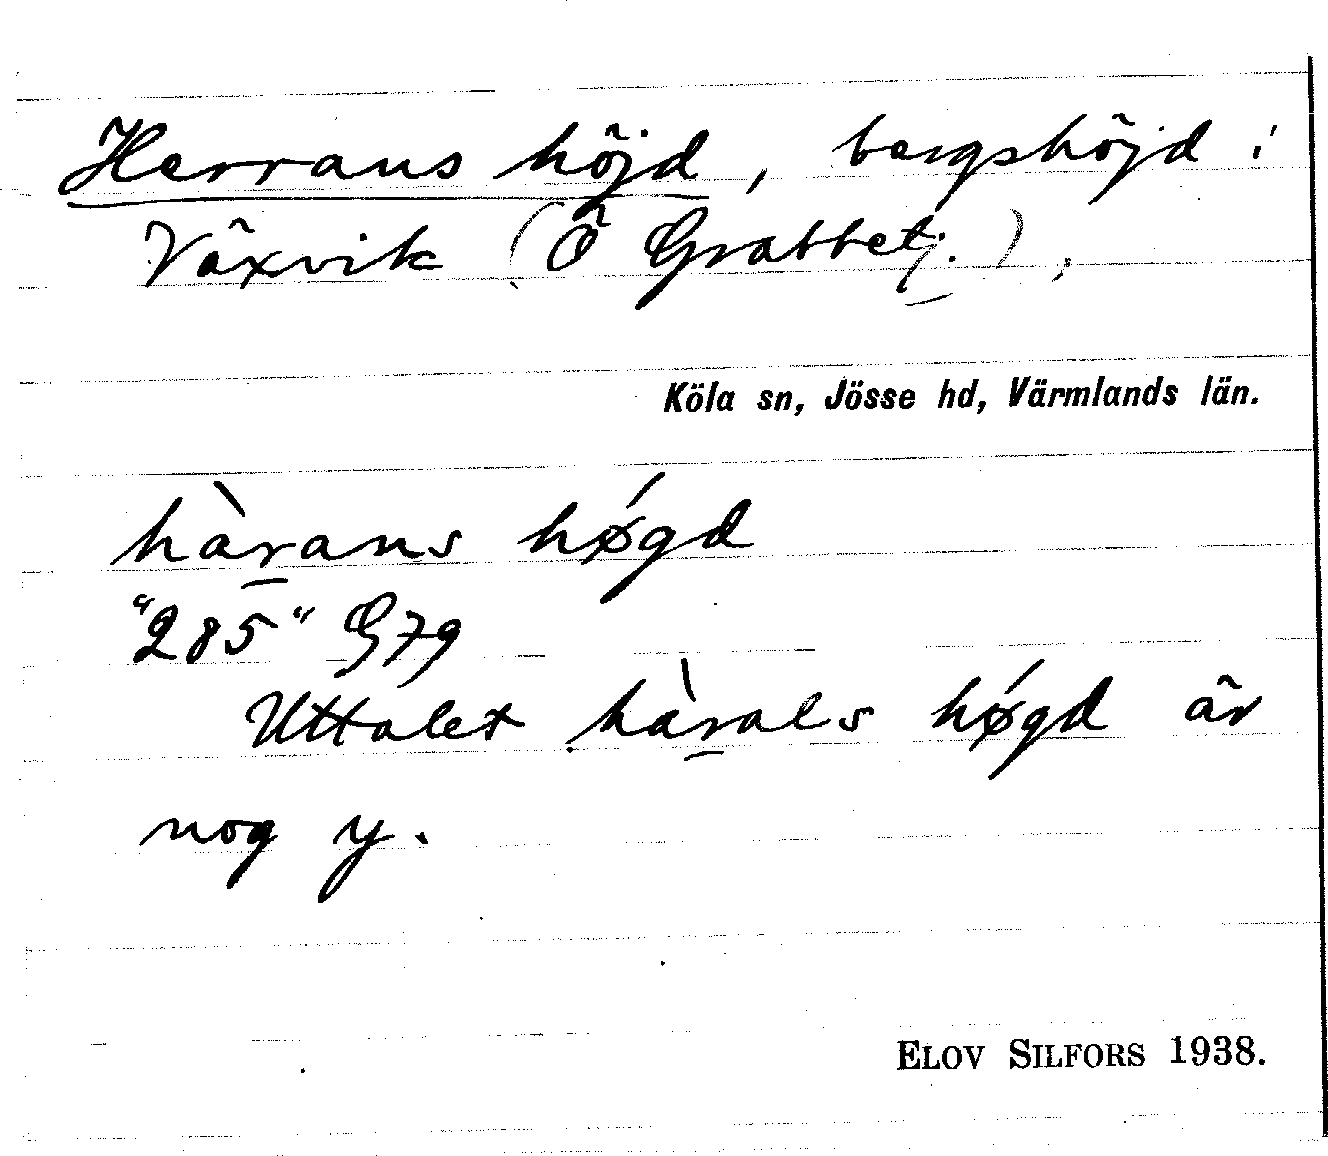 Herrans höjd, bergshöjd i
Växvik (Ö Grabbetj.),
Köla sn, Jösse hd, Värmlands län.
hàrans høgd
"285" G79
Uttalet hàrals høgd är
nog y.
ELOV SILFORS 1938.